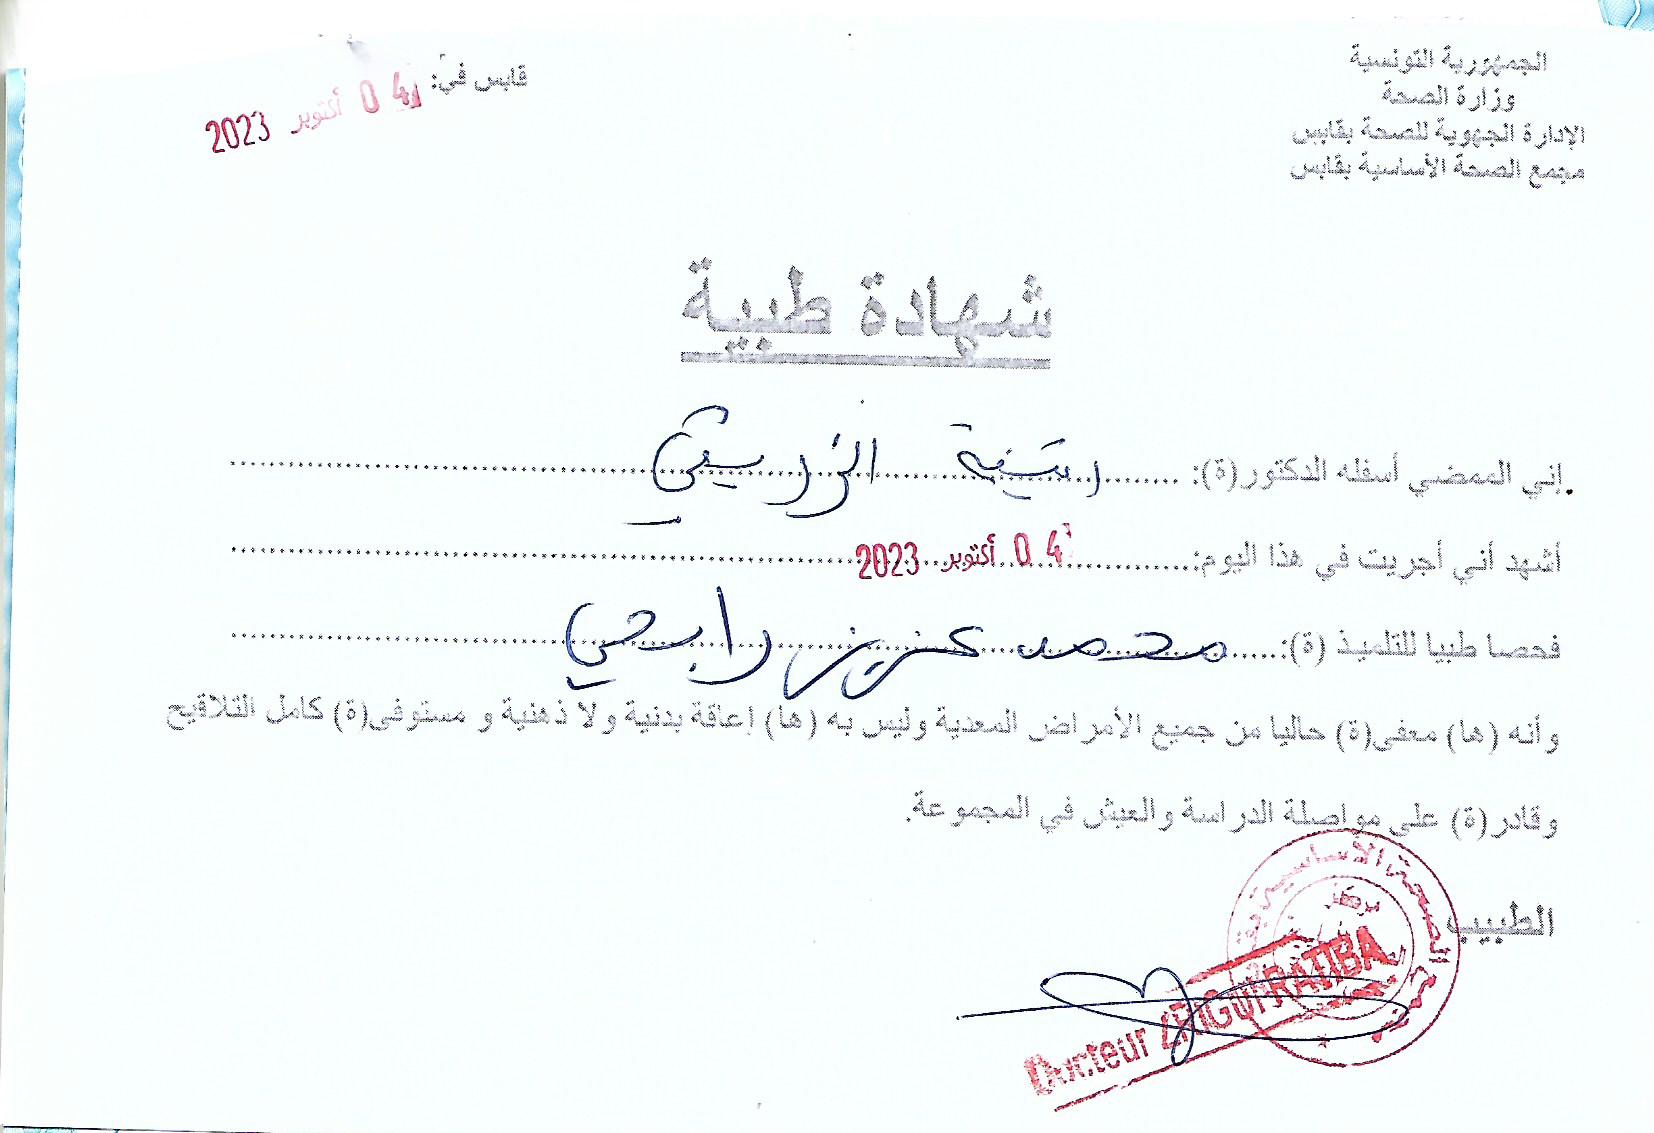 الجمهورية التونسية
وزارة الصحة
الإدارة الجهوية للصحة بقابس
مجمع الصحة الأساسية بقابس
قابس في: 04 أكتوبر 2023
شهادة طبية
إني الممضي أسفله الدكتور(ة):
أشهد أني أجريت في هذا اليوم: 04 أكتوبر 2023
فحصا طبيا للتلميذ (ة): محمد عزيز رابحي
وأنه (ها) معفى(ة) حاليا من جميع الأمراض المعدية وليس به (ها) إعاقة بدنية ولا ذهنية و مستوفى(ة) كامل التلاقيح
وقادر(ة) على مواصلة الدراسة والعيش في المجموعة.
الطبيب
الصحة الأساسية
مركز
Docteur ZRIGUI RATIBA